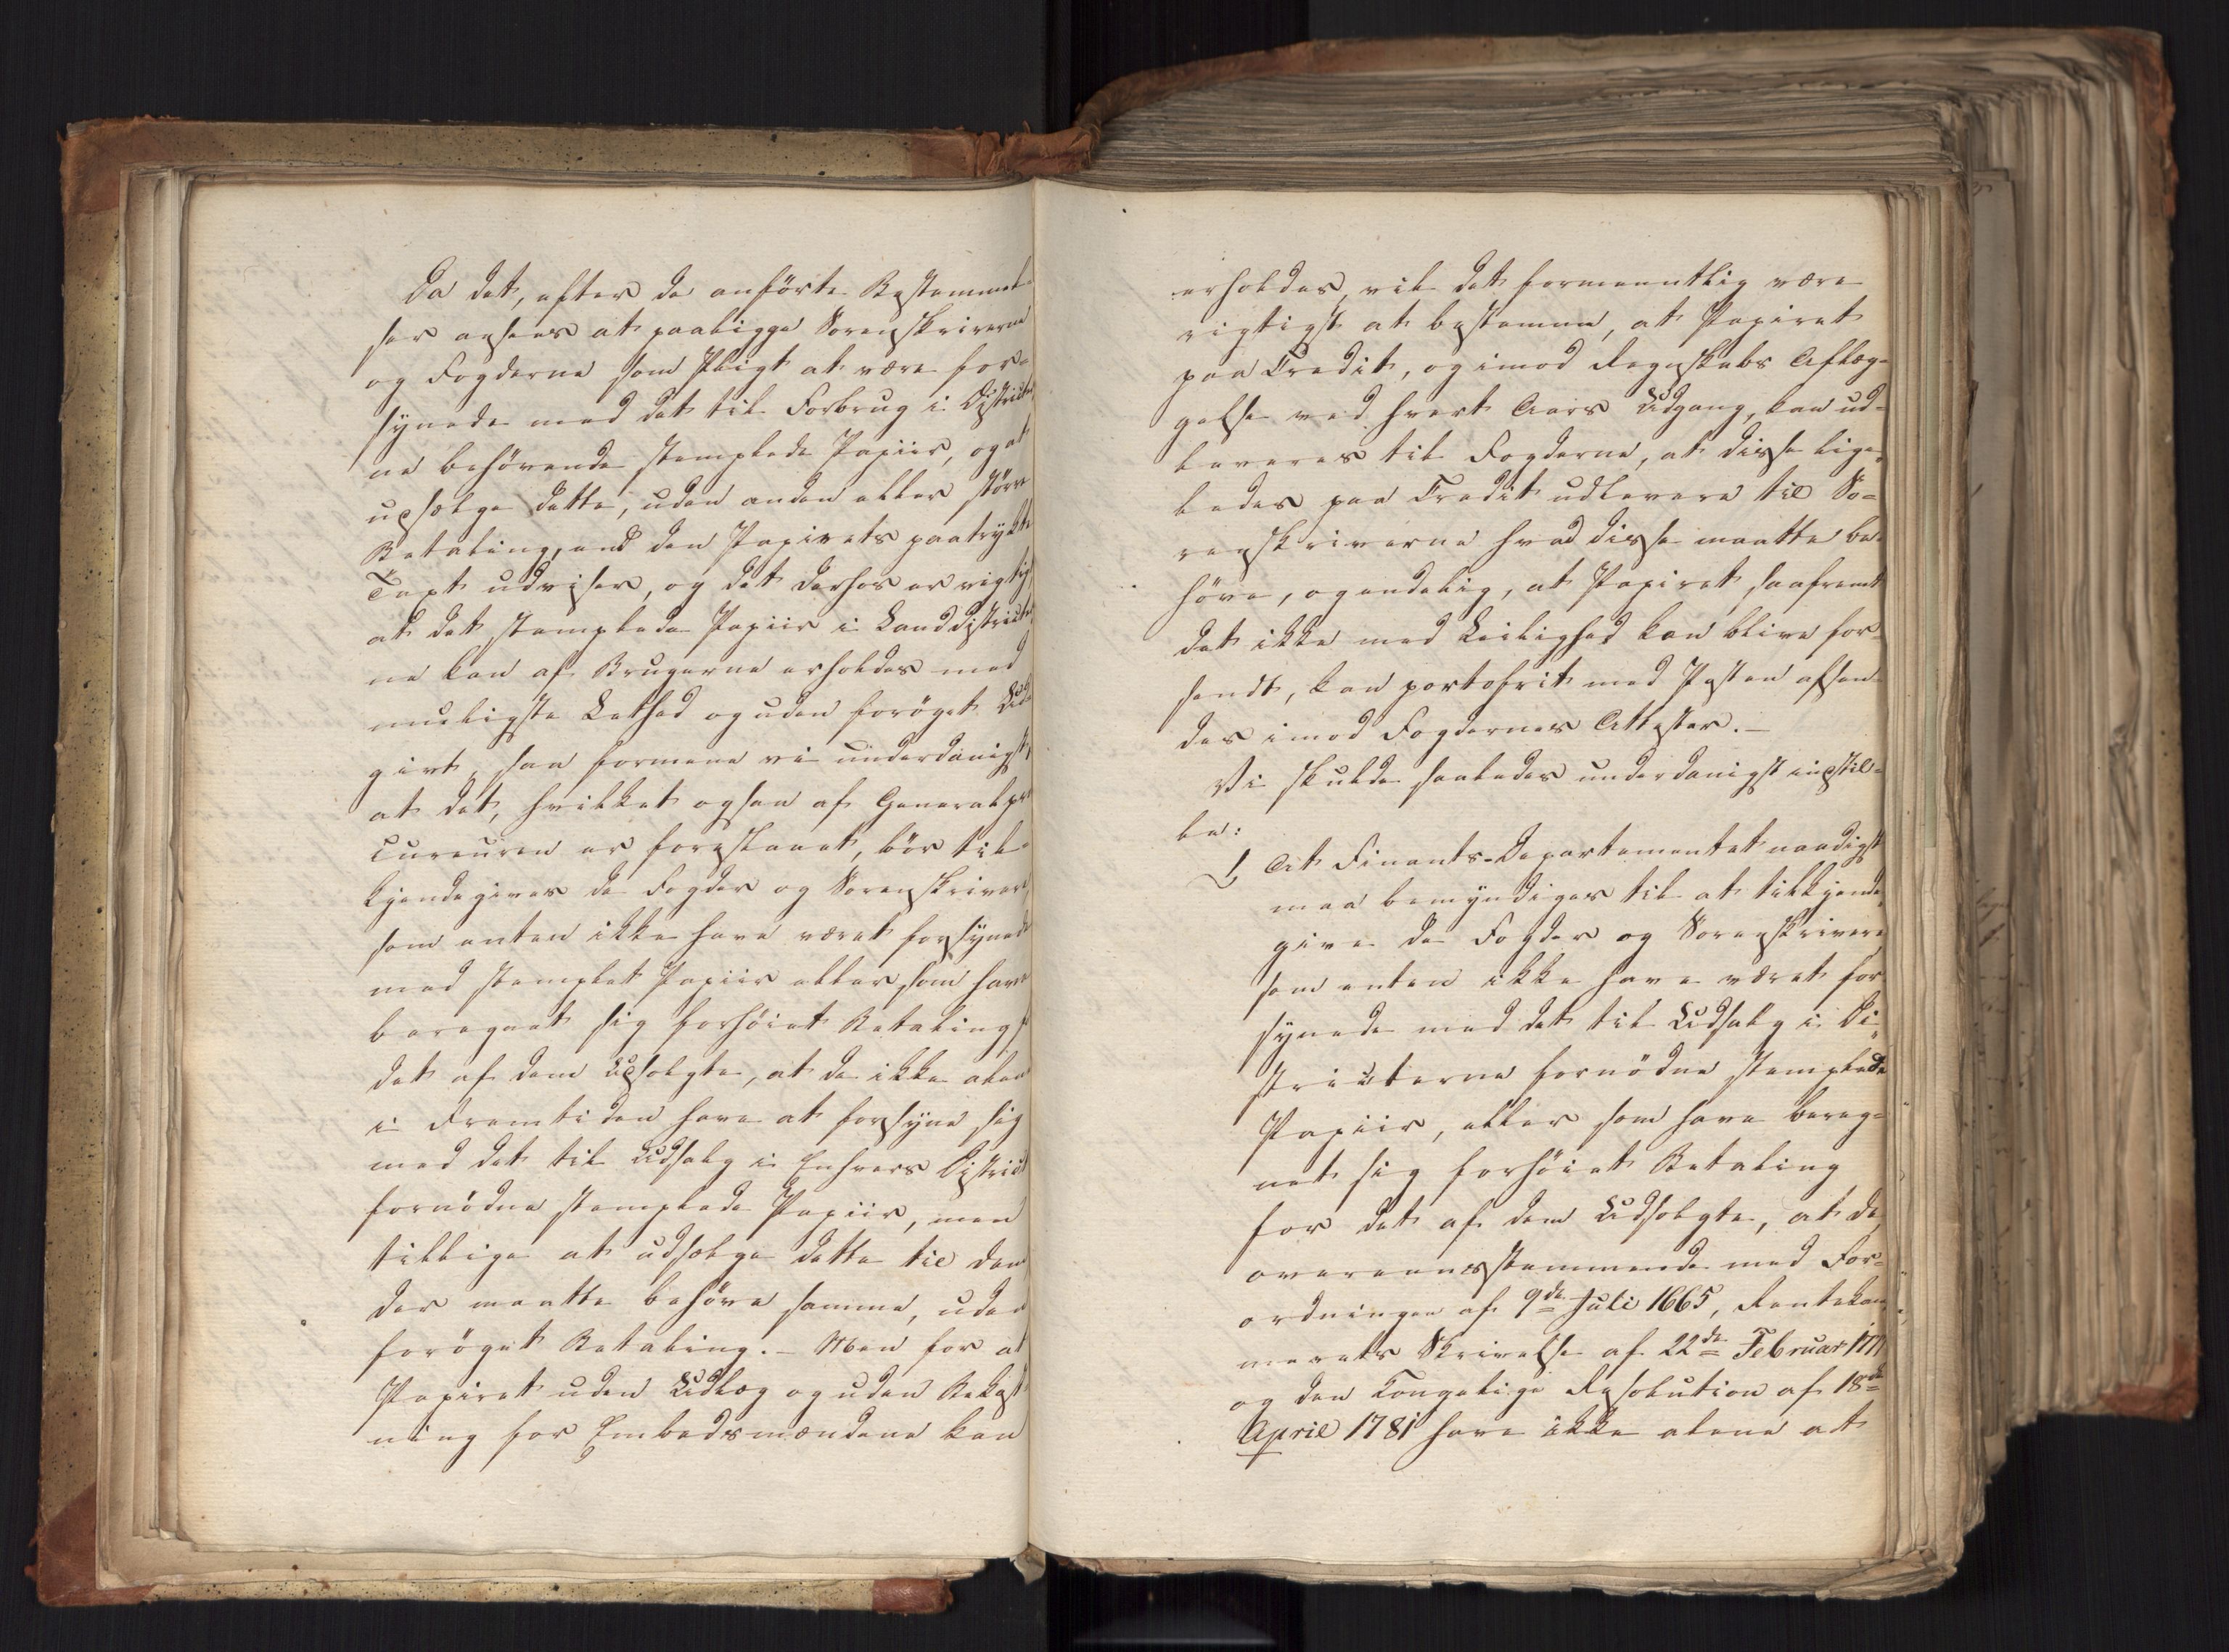 Da det, efter de anförte Bestemmel-
ser ansees at paaligge Sorenskriverne
og Fogderne som Pligt at være for-
synede med det til Forbrug i Districter
ne behövende stemplede Papiir, og at
upsælge dette, uden anden eller större
Betaling, end den Papirets paatrykte
Taxt udviser, og det derhos er vigtigt
at det stemplede Papiir i Landdistricter
ne kan af Brugerne erholdes med
mueligste Lethed og uden foröget Ud
givt, saa formene vi underdanigst,
at det, hvilket ogsaa af Generalpro
cureuren er foreslaaet, bör til-
kjendegives de Fogder og Sorenskrivere,
som enten ikke have været forsynede
med stemplet Papiir eller som have
beregnet sig forhöiet Betaling for
det af dem Upsolgte, at de ikke alene
i Fremtiden have at forsyne sig
med det til Udsalg i Enhvers District
fornödne stemplede Papiir, men
tillige at udsælge dette til dem
der maatte behöve samme, uden
foröget Betaling. – Men for at
Papiret uden Udlæg og uden Bekost
ning for Embedsmændene kan
erholdes, vil det formeentlig være
rigtigst at bestemme, at Papiret
paa Credit, og imod Regnskabs Aflæg-
gelse ved hvert Aars Udgang, kan ud-
leveres til Fogderne, at disse lige-
ledes paa Credit udlevere til So-
renskriverne hvad disse maatte be-
höve, og endelig, at Papiret, saafremt
det ikke med Leilighed kan blive for-
sendt, kan portofrit med Posten afsen-
des imod Fogdernes Attester. –
Vi skulde saaledes underdanigst inpstil-
le:
1, At Finants-Departementet naadigst
maa bemyndiges til at tilkjende-
give de Fogder og Sorenskrivere
som enten ikke have været for
synede med det til Udsalg i Di-
stricterne fornödne stemplede
Papiir, eller som have bereg-
net sig forhöiet Betaling
for det af dem Udsolgte, at de
overeensstemmende med For-
ordningen af 9de Juli 1665, Rentekam
merets Skrivelse af 22de Februar 177
og den Kongelige Resolution af 18de
April 1781 have ikke alene at